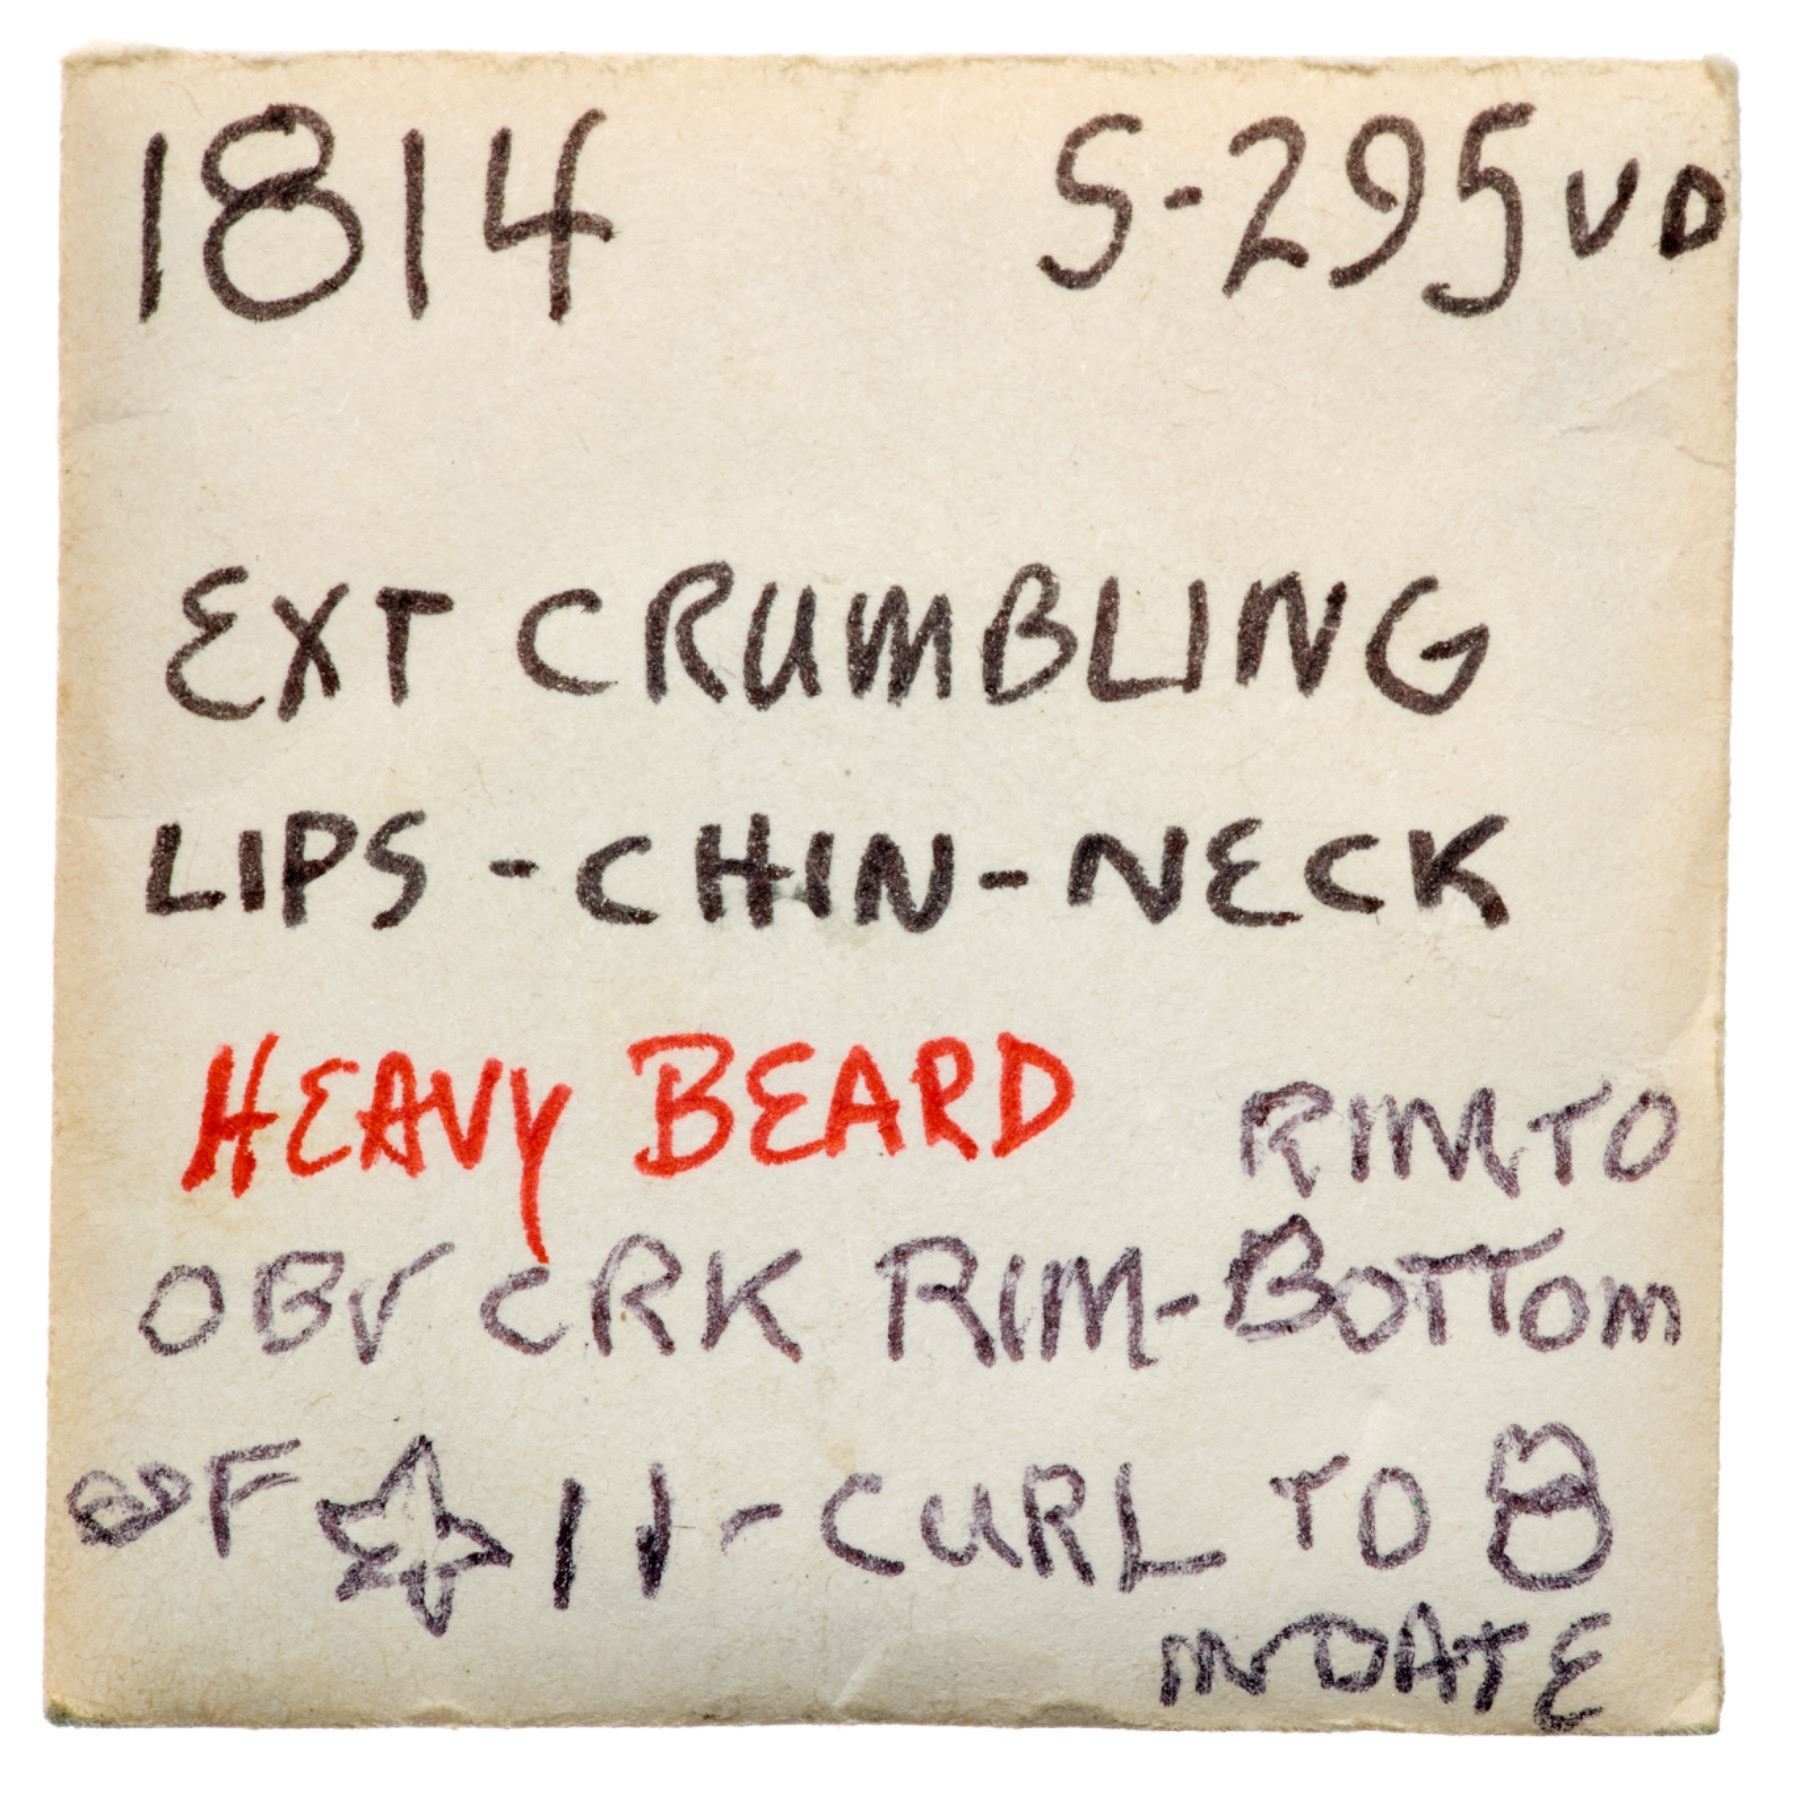 1814 S-295 VD
EXT CRUMBLING
LIPS - CHIN - NECK
HEAVY BEARD RIM TO
OBV CRK RIM - BOTTOM
OF ☆ 11 - CURL TO 8
IN DATE